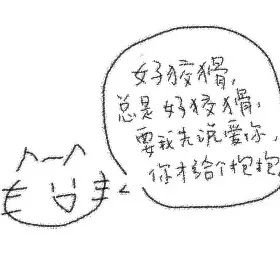 好狡猾，
总是好狡猾，
要我先说爱你，
你才给个抱抱